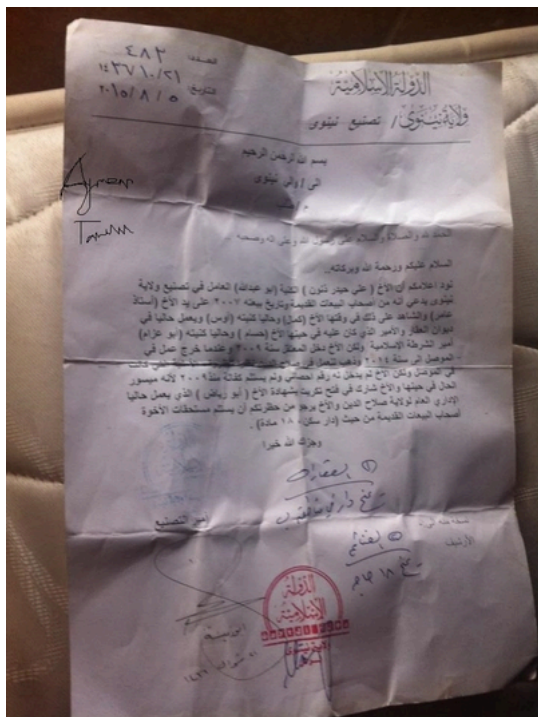 العدد: ٤٨٢
١٤٣٦/١٠/٢١
التاريخ: ٢٠١٥/٨/٥
الدولة الإسلامية
ولاية نينوى / تصنيع نينوى
بسم الله الرحمن الرحيم
الى / والي نينوى
م / طلب
الحمد لله والصلاة والسلام على رسول الله وعلى اله وصحبه ..
السلام عليكم ورحمة الله وبركاته..
نود اعلامكم أن الأخ ( علي حيدر ذنون ) الكنية (ابو عبدالله) العامل في تصنيع ولاية
نينوى يدعي أنه من أصحاب البيعات القديمة وتاريخ بيعته ٢٠٠٧ على يد الأخ (أستاذ
عامر) والشاهد على ذلك في وقتها الأخ (كمال) وحاليا كنيته (أوس) ويعمل حاليا في
ديوان العقار والأمير الذي كان عليه في حينها الأخ (حسام ) وحاليا كنيته (أبو عزام)
أمير الشرطة الإسلامية ولكن الأخ دخل المعتقل سنة ٢٠٠٩ وعندما خرج عمل في
الموصل الى سنة ٢٠١٤ وذهب للعمل في
في الموصل ولكن الأخ لم يدخل له رقم احصائي ولم يستلم كفالة منذ ٢٠٠٩ لأنه ميسور
الحال في حينها والأخ شارك في فتح تكريت بشهادة الأخ ( أبو رياض ) الذي يعمل حاليا
الإداري العام لولاية صلاح الدين والأخ يرجو من حظرتكم أن يستلم مستحقات الأخوة
أصحاب البيعات القديمة من حيث (دار سكن ، ١٨ مادة) .
وجزاك الله خيرا
أمير التصنيع
نسخة منه الى:
الأرشيف
الدولة
الإسلامية